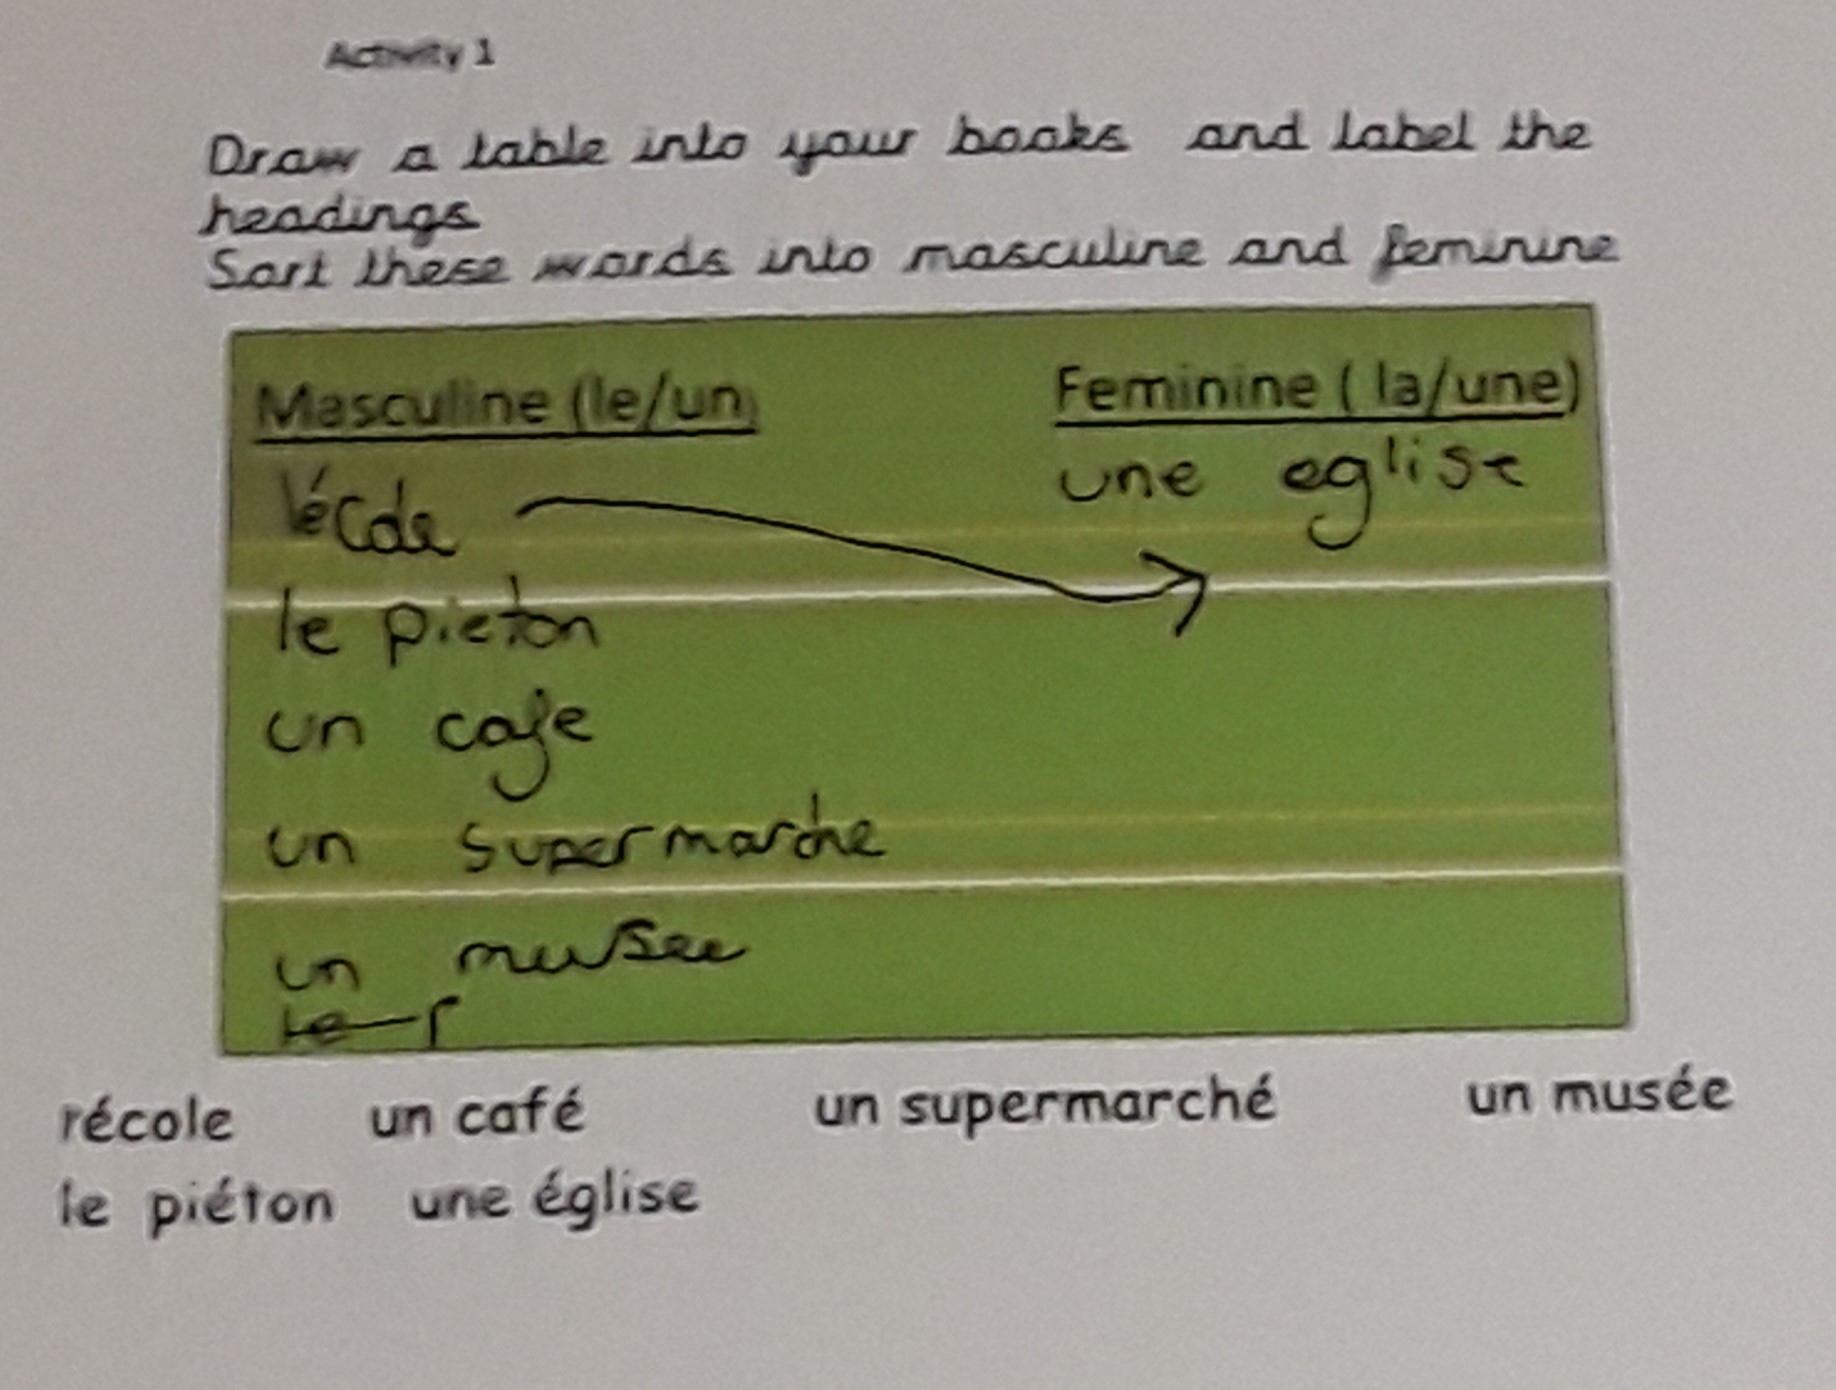 Activity 1
Draw a table into your books and label the
headings
Sort these words into masculine and feminine
Masculine (le/un) Feminine ( la/une)
l'école une eglise
le pieton
un cafe
un supermarche
un musee
le p
récole un café un supermarché un musée
le piéton une église